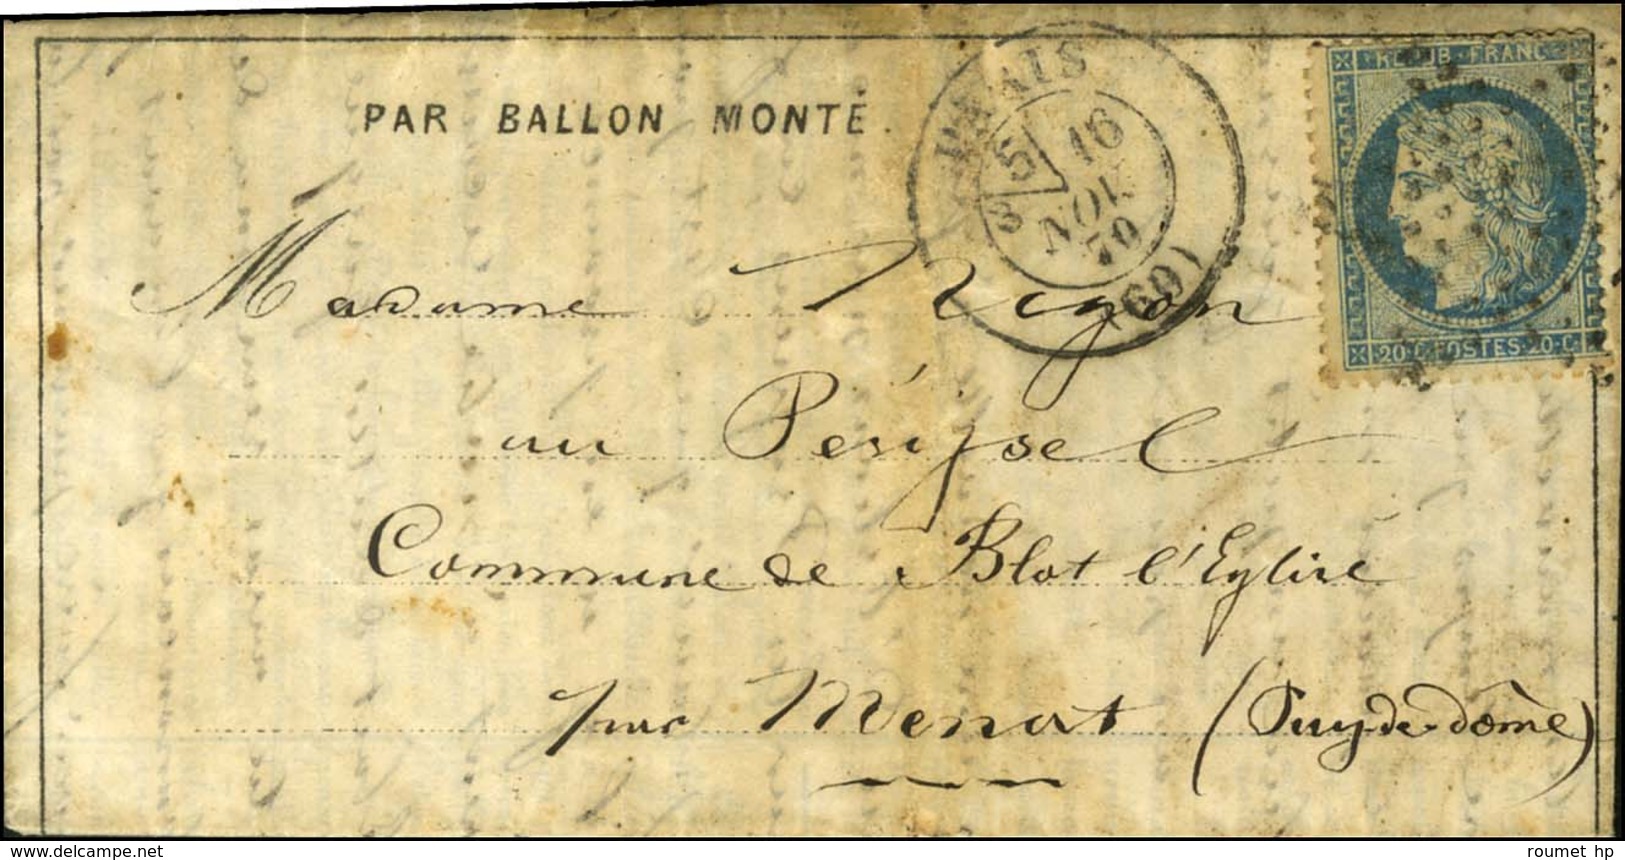 PAR BALLON MONTÉ.
PARIS
(60)
5
16
NOV.
70
REPUB. FRANC.
20·C·POSTES·20·C·
Madame
au
Commune de Blot l'Eglise
par Menat (Puy-de-dôme)
www.delcampe.net
roumet hp